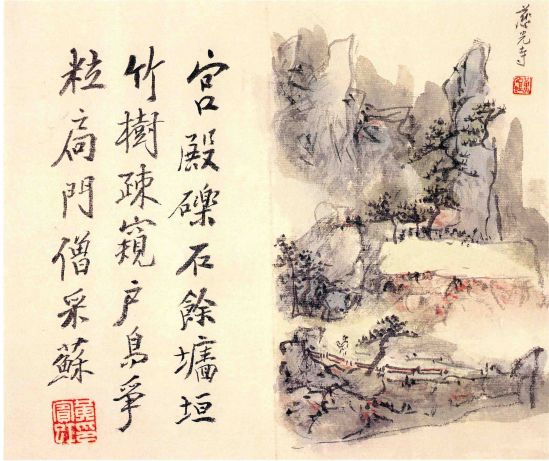 慈光寺
宮殿礫石餘墻垣
竹樹疎窺戶鳥爭
粒扃門僧采蘇